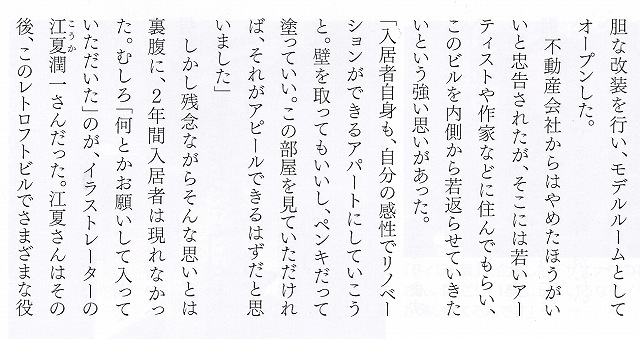 胆な改装を行い、モデルルームとして
オープンした。
　不動産会社からはやめたほうがい
いと忠告されたが、そこには若いアー
ティストや作家などに住んでもらい、
このビルを内側から若返らせていきた
いという強い思いがあった。
「入居者自身も、自分の感性でリノベー
ションができるアパートにしていこう
と。壁を取ってもいいし、ペンキだって
塗っていい。この部屋を見ていただけれ
ば、それがアピールできるはずだと思
いました」
　しかし残念ながらそんな思いとは
裏腹に、2年間入居者は現れなかっ
た。むしろ「何とかお願いして入って
いただいた」のが、イラストレーターの
江夏潤一さんだった。江夏さんはその
こうか
後、このレトロフトビルでさまざまな役